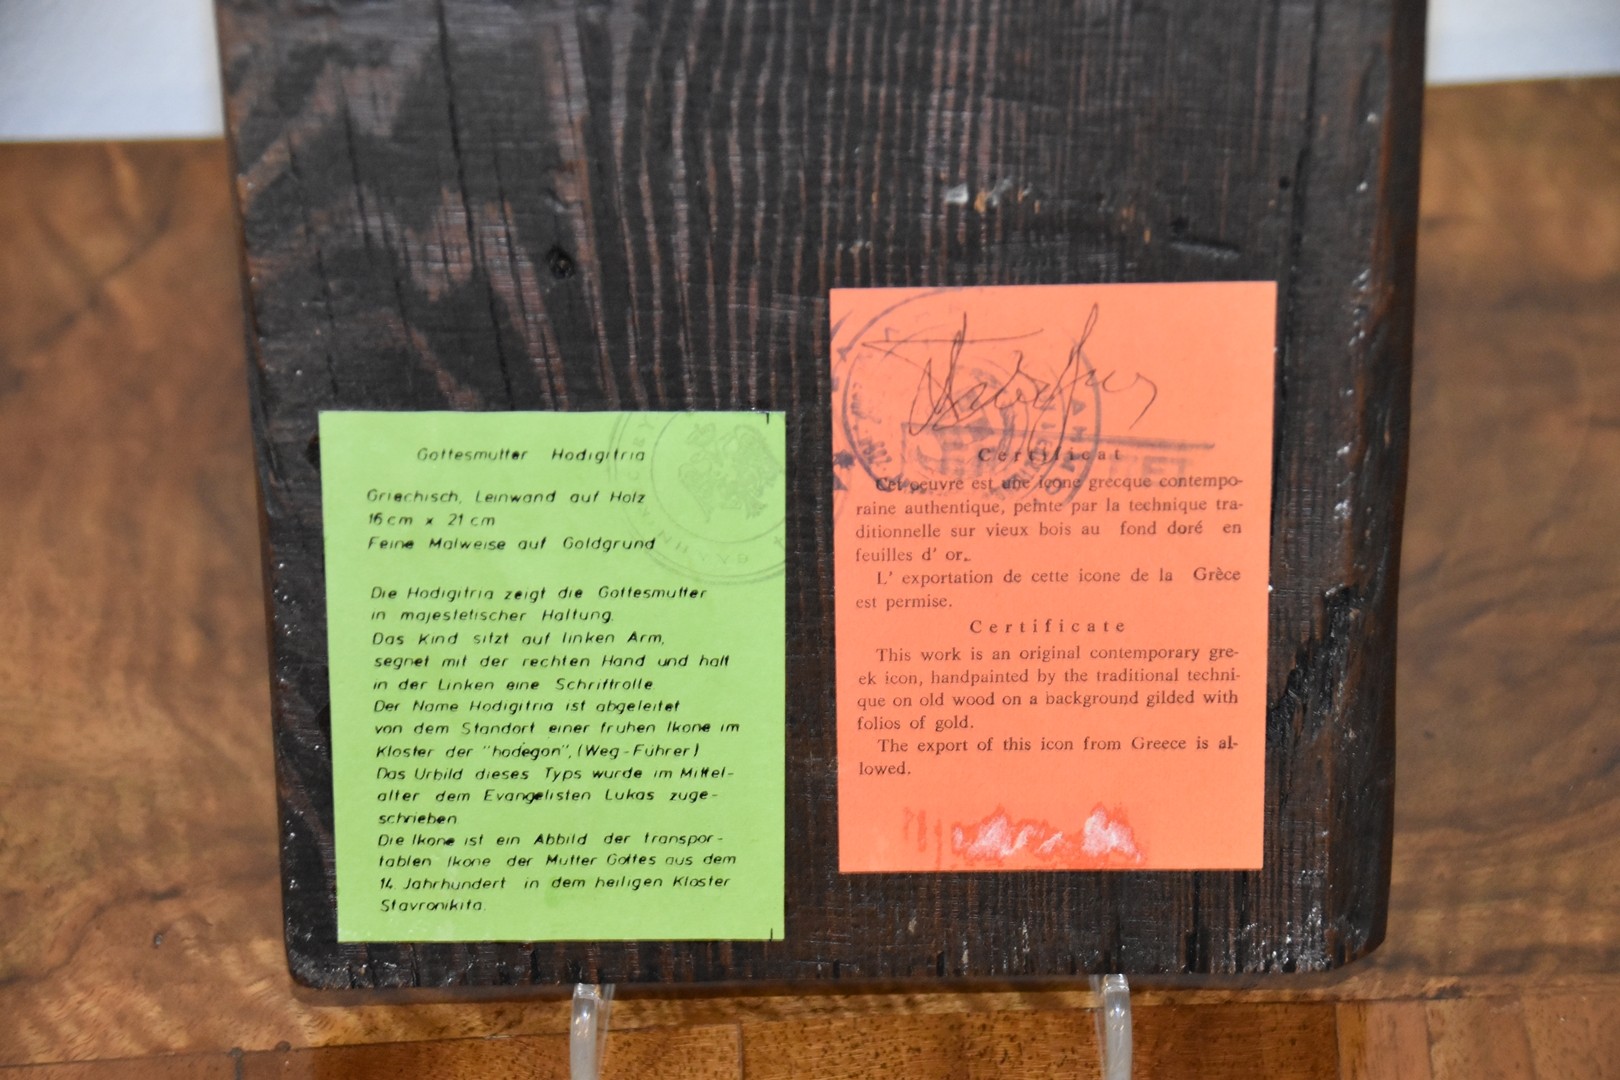 Gottesmutter Hodigitria
Griechisch, Leinwand auf Holz
16 cm x 21 cm
Feine Malweise auf Goldgrund
Die Hodigitria zeigt die Gottesmutter
in majestetischer Haltung.
Das Kind sitzt auf linken Arm,
segnet mit der rechten Hand und halt
in der Linken eine Schriftrolle
Der Name Hodigitria ist abgeleitet
von dem Standort einer fruhen Ikone im
Kloster der "hodegon", (Weg-Führer)
Das Urbild dieses Typs wurde im Mittel-
alter dem Evangelisten Lukas zuge-
schrieben
Die Ikone ist ein Abbild der transpor-
tablen Ikone der Mutter Gottes aus dem
14. Jahrhundert in dem heiligen Kloster
Stavronikita.
Certificat
Cet oeuvre est une icone grecque contempo-
raine authentique, peinte par la technique tra-
ditionnelle sur vieux bois au fond doré en
feuilles d' or.
L' exportation de cette icone de la Grèce
est permise.
Certificate
This work is an original contemporary gre-
ek icon, handpainted by the traditional techni-
que on old wood on a background gilded with
folios of gold.
The export of this icon from Greece is al-
lowed.